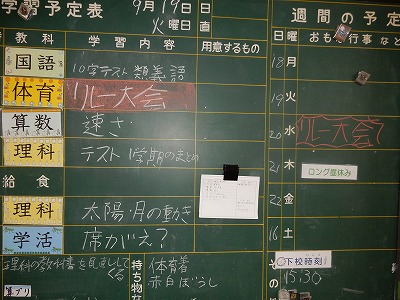 学習予定表
9月19日
火曜日
教科 学習内容 用意するもの
国語 10字テスト 類義語
体育 リレー大会
算数 速さ
理科 テスト 1学期のまとめ
給食
理科 太陽・月の動き
学活 席がえ?
理科の教科書を見直してくる
持ち物 体育着
赤白ぼうし
算プリ
週間の予定
日曜 おもな行事など
18 月
19 火
20 水 リレー大会?
21 木 ロング昼休み
22 金
16 土
下校時刻
15:30